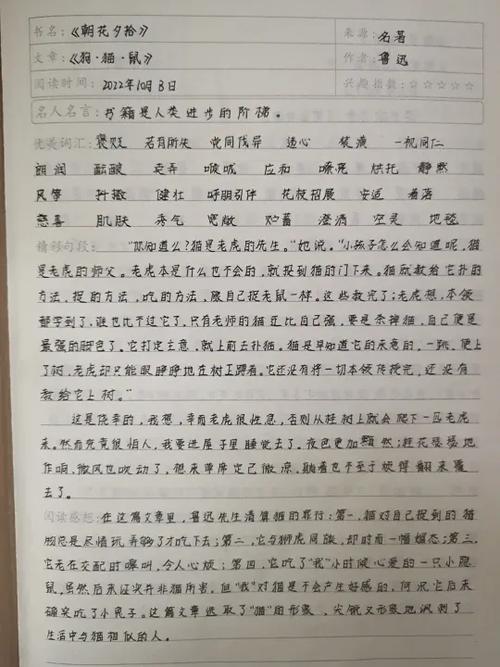 书名：《朝花夕拾》 来源：名著
文章：《狗·猫·鼠》 作者：鲁迅
阅读时间：2022年10月8日 兴趣指数：☆☆☆☆☆
名人名言：书籍是人类进步的阶梯。
优美词汇：褒贬 若有所失 党同伐异 适心 一视同仁
朗润 酝酿 卖弄 喉咙 应和 嘹亮 烘托 静默
风筝 抖擞 健壮 呼朋引伴 花枝招展 安适 着落
慈善 肌肤 秀气 宽敞 贮蓄 澄清 空灵 地毯
精彩句段： “你知道么？猫是老虎的先生。”她说。“小孩子怎么会知道呢，猫
是老虎的师父。老虎本是什么也不会的，就投到猫的门下来。猫就教给它扑的
方法，捉的方法，吃的方法，像自己捉老鼠一样。这些教完了；老虎想，本领
都学到了，谁也比不过它了，只有老师的猫还比自己强，要是杀掉猫，自己便是
最强的脚色了。它打定主意，就上前去扑猫。猫是早知道它的来意的，一跳，便上
了树，老虎却只能眼睁睁地在树下蹲着。它还没有将一切本领传授完，还没有
教给它上树。”
这是侥幸的，我想，幸而老虎很性急，否则从桂树上就会爬下一匹老虎
来。然而究竟很怕人，我要进屋子里睡觉去了。夜色更加黯然；桂花瑟瑟地
作响，微风也吹动了，想来草席定已微凉，躺着也不至于烦得翻来覆
去了。
阅读感想：在这篇文章里，鲁迅先生清算猫的罪行：第一，猫对自己捉到的猎
物总是尽情玩弄够了才吃下去；第二，它与狮虎同族，却时而一幅媚态；第三，
它老在交配时嗥叫，令人心烦；第四，它吃了“我”小时候心爱的一只小隐
鼠，虽然后来证实并非猫所害，但“我”对猫是不会产生好感的，何况它后来
确实吃了小兔子。这篇文章选取了“猫”的形象，尖锐又形象地讽刺了
生活中与猫相似的人。